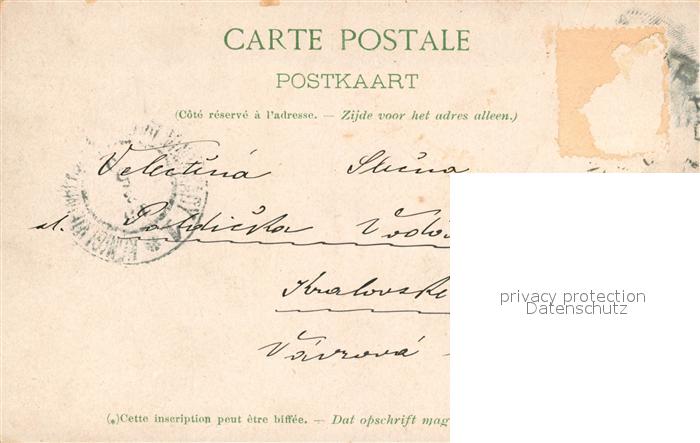 CARTE POSTALE
POSTKAART
(Côté réservé à l'adresse. — Zijde voor het adres alleen.)
Velectěná Slečna
sl.
Kralovské
Vávrová
privacy protection
Datenschutz
(*)Cette inscription peut être biffée. — Dat opschrift mag